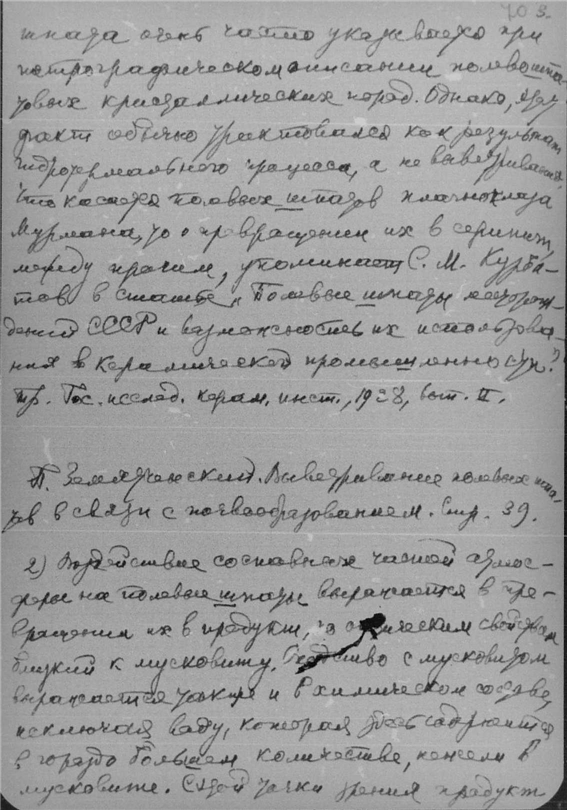 70 3.
шпата очень часто указывается при
петрографическом описании полевошпа-
товых кристаллических пород. Однако, этот
факт обычно трактовался как результат
гидротермального процесса, а не выветривания.
Что касается полевых шпатов плагиоклаза
Мурмана, то о превращении их в серицит,
между прочим, упоминает С. М. Курба-
тов в статье „Полевые шпаты месторож-
дений СССР и возможность их использова-
ния в керамической промышленности."
Тр. Гос. исслед. керам. инст., 1928, вып. II.
П. Земятченский. Выветривание полевых шпа-
тов в связи с почвообразованием. Стр. 39.
2) Воздействие составных частей атмос-
феры на полевые шпаты выражается в пре-
вращении их в продукт, по оптическим свойствам
близкий к мусковиту. Сходство с мусковитом
выражается также и в химическом составе,
исключая воду, которая здесь содержится
в гораздо большем количестве, нежели в
мусковите. С этой точки зрения продукт